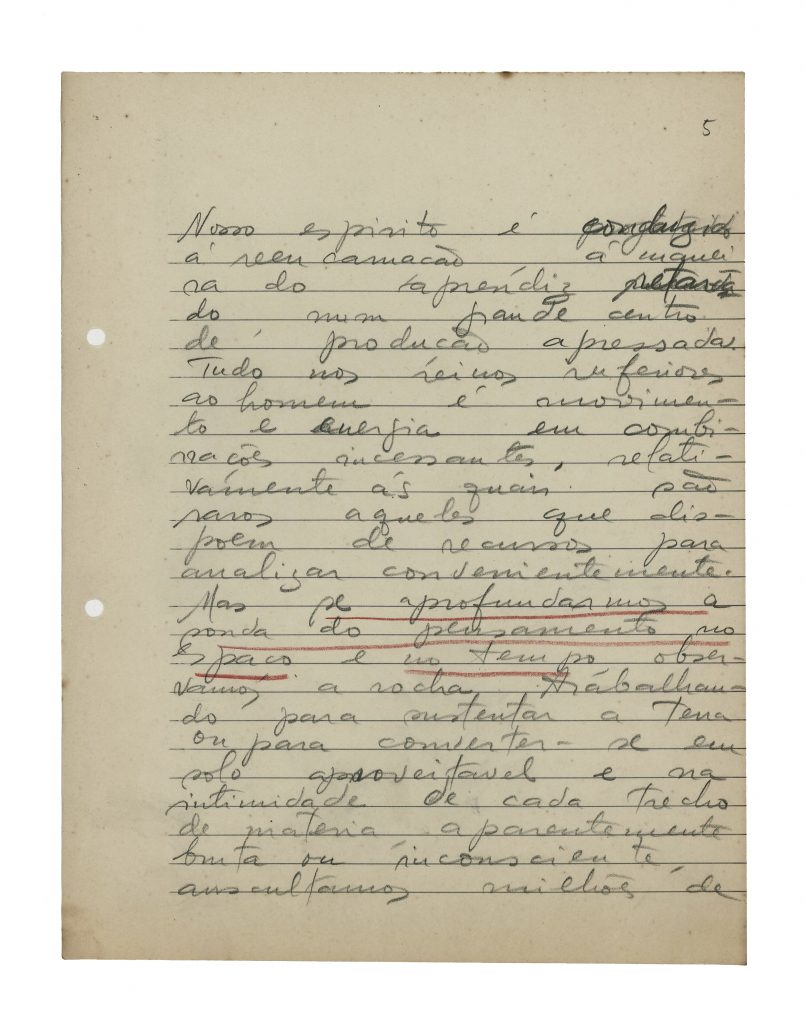 5
Nosso espirito é conduzido
á reencarnacão á manei
ra do aprendiz retarda
do num grande centro
de producão apressada.
Tudo nos reinos inferiores
ao homem é movimen-
to e energia em combi-
nações incessantes, relati-
vamente ás quais são
raros aqueles que dis-
poem de recursos para
analizar convenientemente.
Mas se aprofundarmos a
sonda do pensamento no
espaco e no tempo obser-
vamos a rocha trabalhan-
do para sustentar a terra
ou para converter-se em
solo aproveitavel e na
intimidade de cada trecho
de materia aparentemente
bruta ou inconsciente
auscultamos milhões de